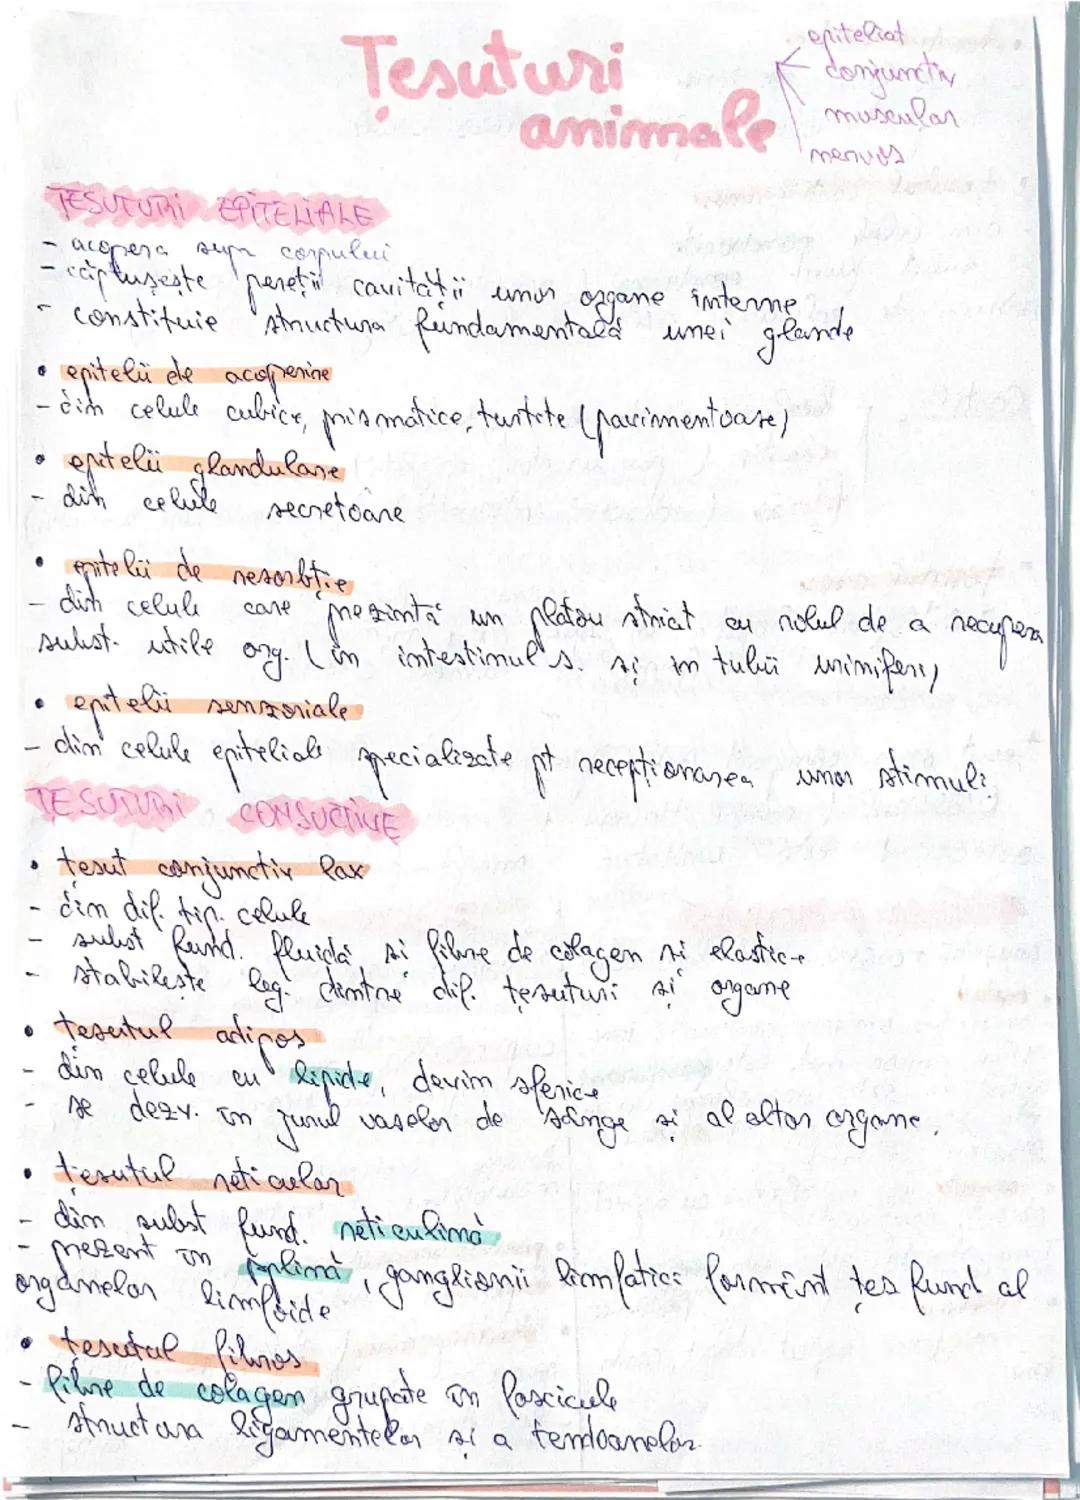 Țesuturi
animale
epiteliat
conjunctiv
muscular
nervos
ȚESUTURI EPITELIALE
- acopera supr corpului
- căptușește pereții cavității unor organe interne
- constituie structura fundamentală unei glande
• epitelii de acoperire
- din celule cubice, prismatice, turtite (pavimentoase)
• epitelii glandulare
- din celule secretoare
• epitelii de resorbție
- din celule care prezintă un platou striat cu rolul de a recupera
subst. utile org. (în intestinul s. și în tubii uriniferi)
• epitelii senzoriale
- din celule epiteliale specializate pt recepționarea unor stimuli
ȚESUTURI CONJUCTIVE
• țesut conjunctiv lax
- din dif. tip. celule
- subst fund. fluidă și fibre de colagen și elastice
- stabilește leg. dintre dif. țesuturi și organe
• țesutul adipos
- din celule cu lipide, devin sferice
- se dezv. în jurul vaselor de sânge și al altor organe.
• țesutul reticular
- din subst fund. reticulină
- prezent în splină, ganglionii limfatici formând țes fund al
organelor limfoide
• țesutul fibros
- fibre de colagen grupate în fascicule
- structura ligamentelor și a tendoanelor.